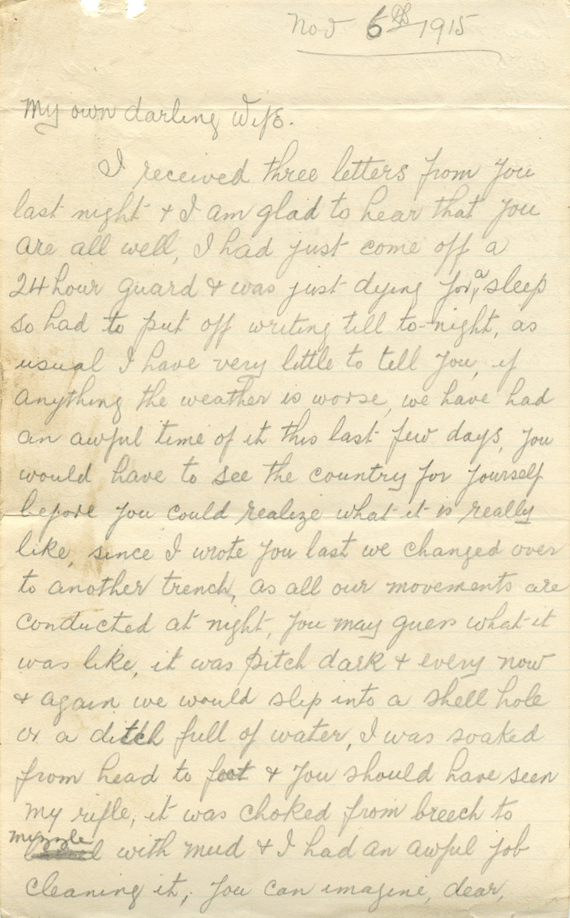 Nov 6th 1915
My own darling Wife.
I received three letters from you
last night & I am glad to hear that you
are all well, I had just come off a
24 hour guard & was just dying for a sleep
so had to put off writing till to-night, as
usual I have very little to tell you, if
anything the weather is worse, we have had
an awful time of it this last few days, you
would have to see the country for yourself
before you could realize what it is really
like, since I wrote you last we changed over
to another trench, as all our movements are
conducted at night, you may guess what it
was like, it was pitch dark & every now
& again we would slip into a shell hole
or a ditch full of water, I was soaked
from head to foot & you should have seen
my rifle, it was choked from breech to
muzzle with mud & I had an awful job
cleaning it, you can imagine, dear,